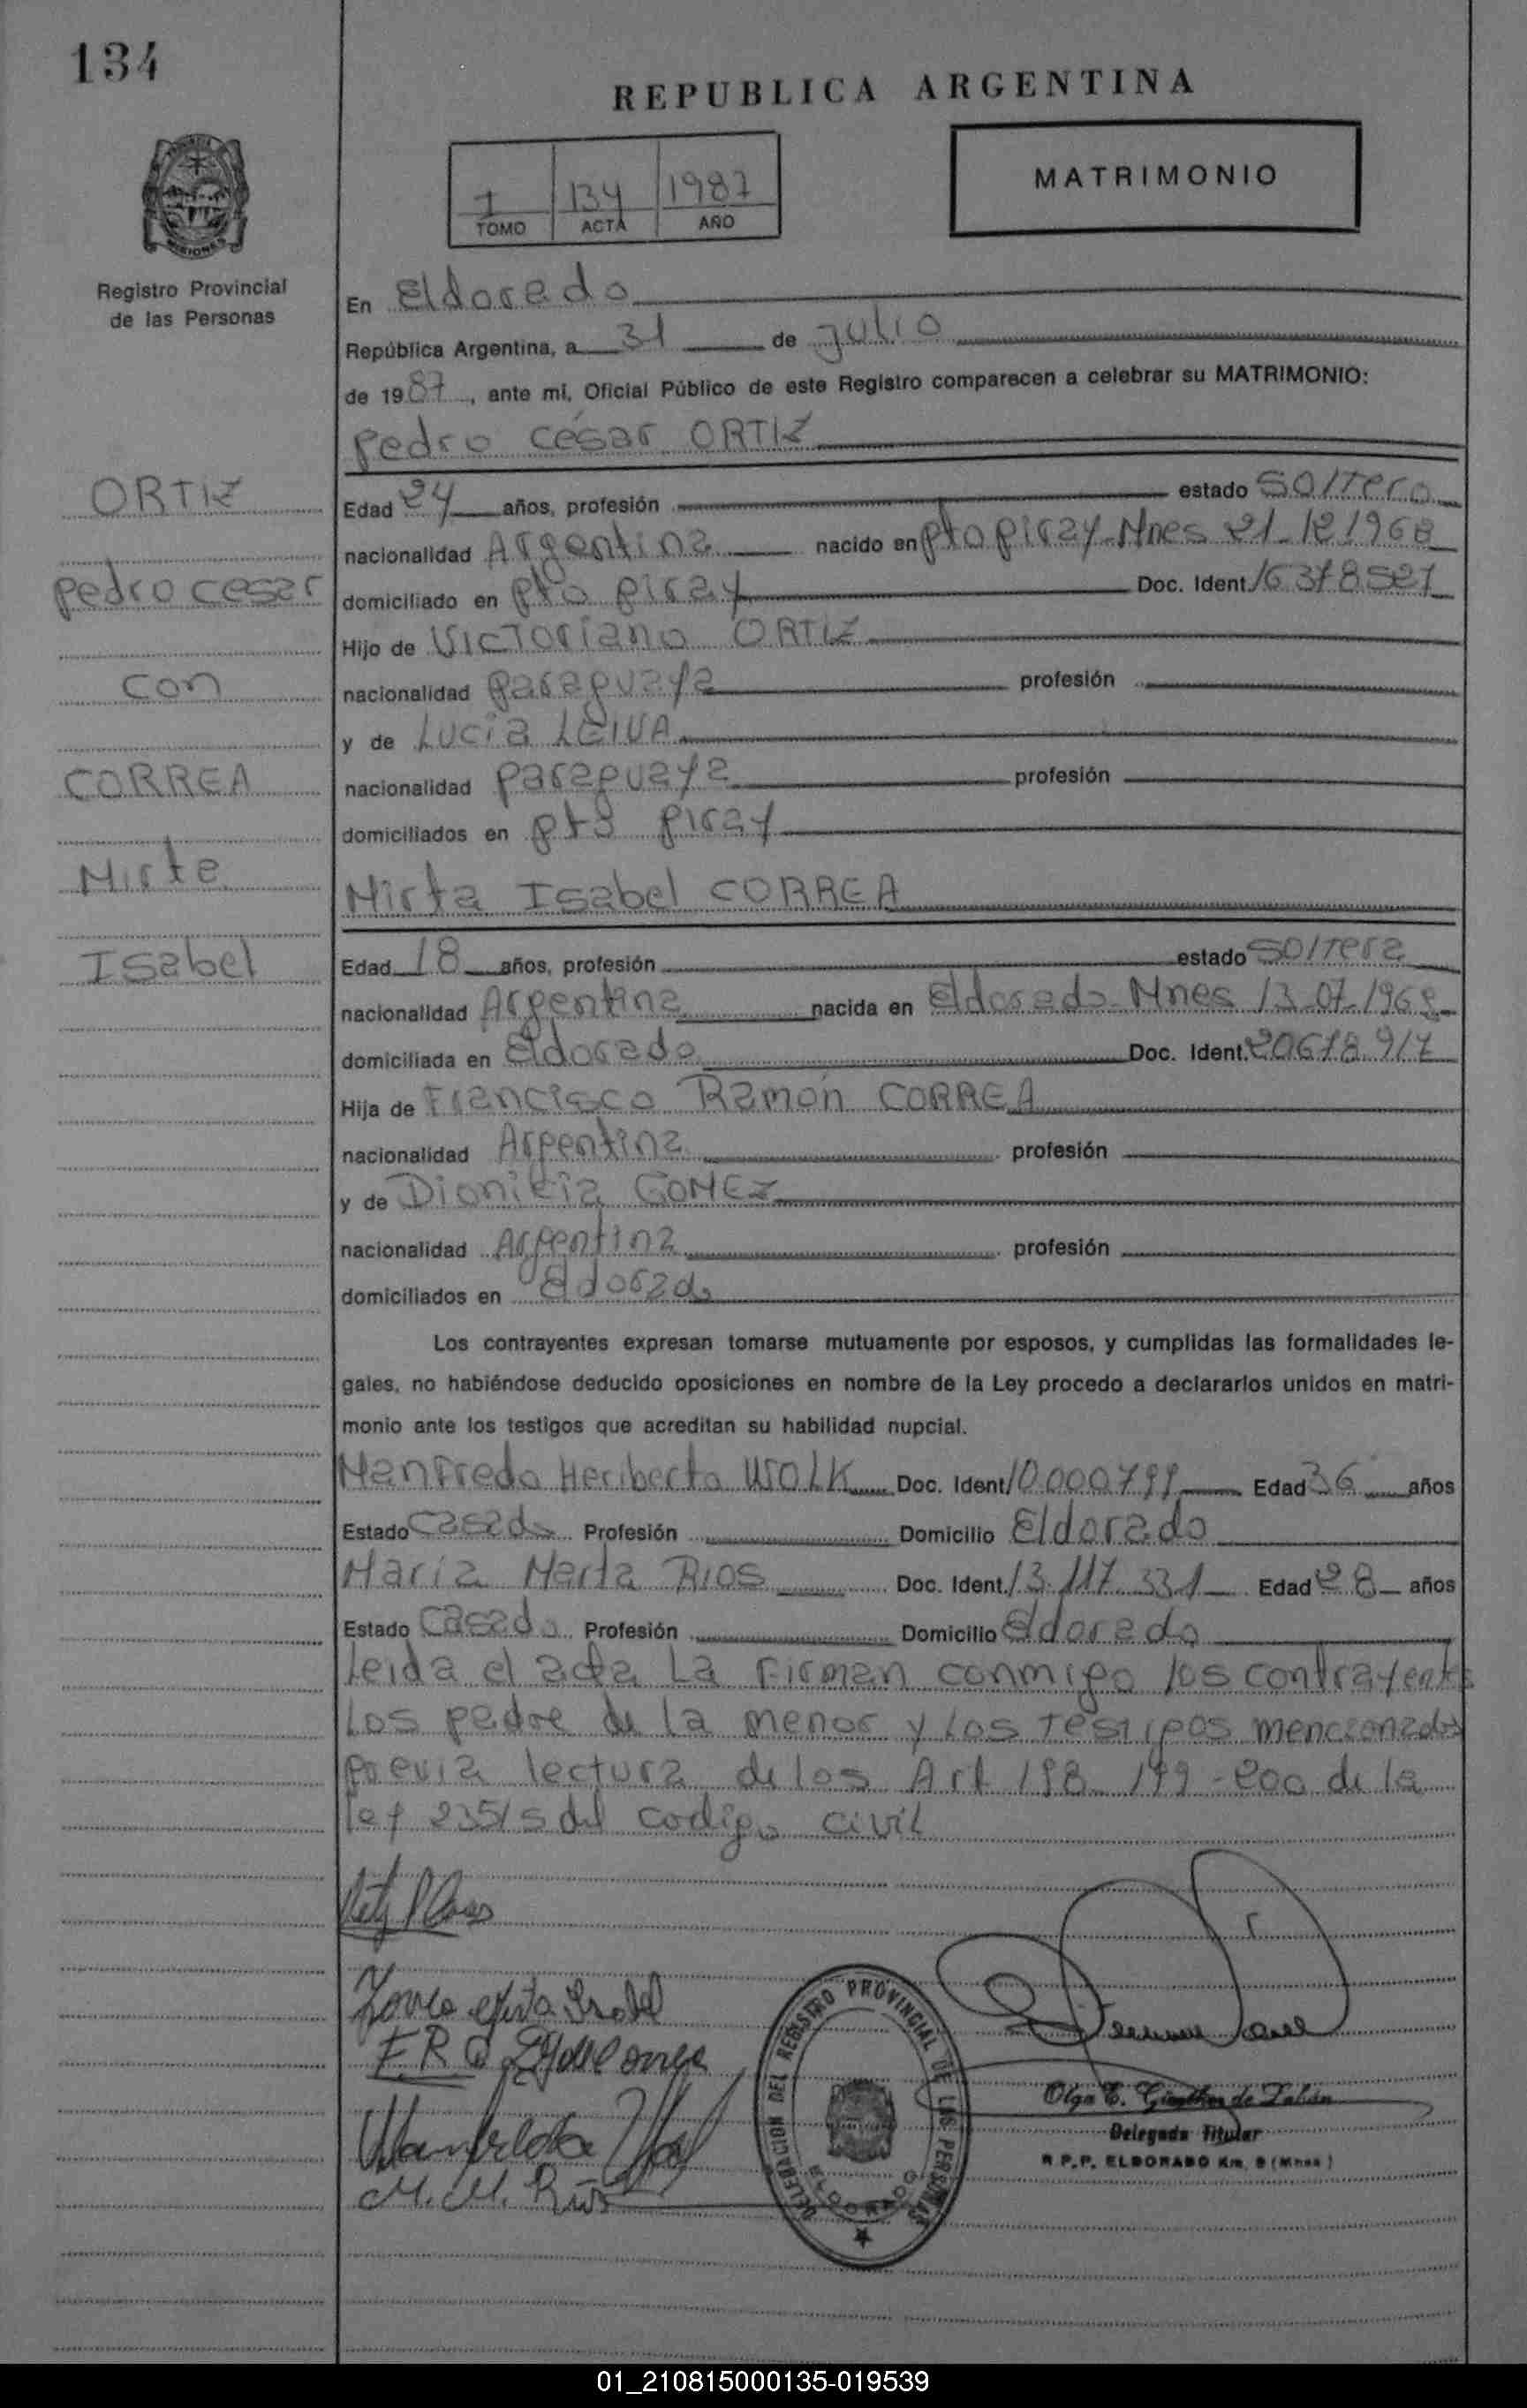 134
REPUBLICA ARGENTINA
1 134 1987
TOMO ACTA AÑO
MATRIMONIO
MISIONES
Registro Provincial
de las Personas
En Eldorado
República Argentina, a 31 de julio
de 1987, ante mi, Oficial Público de este Registro comparecen a celebrar su MATRIMONIO:
pedro césar ORTIZ
ORTIZ
pedro cesar
con
CORREA
Mirte
Isabel
Edad 24 años, profesión estado soltero
nacionalidad Argentina nacido en pto piray Mnes 21-12 1968
domiciliado en pto piray Doc. Ident. 16.378.527
Hijo de Victoriano ORTIZ
nacionalidad paraguaya profesión
y de Lucia LEIVA
nacionalidad paraguaya profesión
domiciliados en pto piray
Mirta Isabel CORREA
Edad 18 años, profesión estado soltera
nacionalidad Argentina nacida en Eldorado Mnes 13-07-1969
domiciliada en Eldorado Doc. Ident. 20678.917
Hija de Francisco Ramón CORREA
nacionalidad Argentina profesión
y de GOMEZ
nacionalidad Argentina profesión
domiciliados en Eldorado
Los contrayentes expresan tomarse mutuamente por esposos, y cumplidas las formalidades le-
gales, no habiéndose deducido oposiciones en nombre de la Ley procedo a declararlos unidos en matri-
monio ante los testigos que acreditan su habilidad nupcial.
Manfredo Heriberto WOLK Doc. Ident. 10.000.799 Edad 36 años
Estado casado Profesión Domicilio Eldorado
María Marta RIOS Doc. Ident. 13.117.331 Edad 28 años
Estado casado Profesión Domicilio Eldorado
Leida el acta La firman conmigo los contrayentes
Los padre de la menor y Los testigos mencionados
previa lectura de los Art 198-199-200 de la
ley 23515 del codigo civil
Isabel
F.R.C
M.M. Ríos
DELEGACION DEL REGISTRO PROVINCIAL DE LAS PERSONAS
ELDORADO
Olga E. de Fabián
Delegada Titular
R.P.P. ELDORADO Km. 9 (Mnes)
01_210815000135-019539